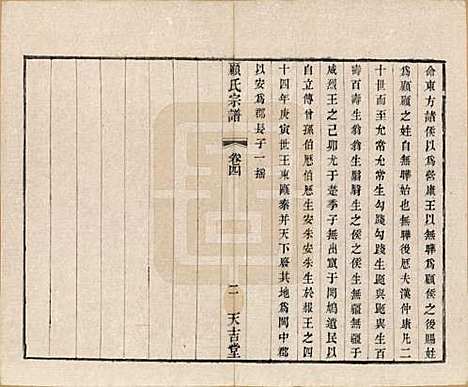 命東方諸侯以爲營康王以無驊爲顧侯之後賜姓
爲顧顧之姓自無驊始也無驊後歷夫漢仲康凡二
十世而至允常允常生勾踐勾踐生鼫與鼫與生百
壽百壽生翁翁生翳翳生之侯之侯生無疆無疆子
威烈王之己卯尤于之
自立傳曾孫伯歷伯歷生安朱安朱生於赧王之四
十四年庚寅世王東甌秦并天下廢其地爲閩中郡
以安爲郡長子一搖
顧氏宗譜
卷四
二
天吉堂